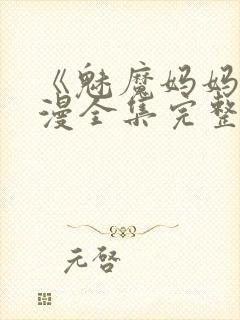 《魅魔妈妈
漫全集完整
元启